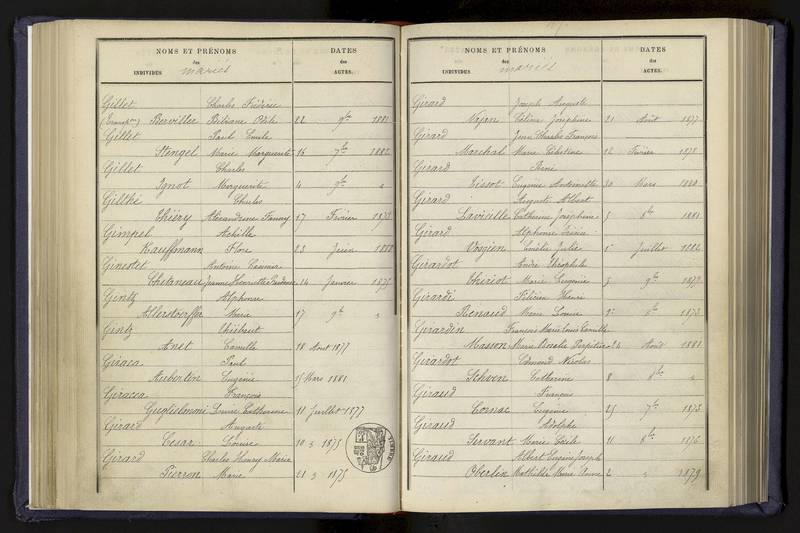 NOMS ET PRÉNOMS
DATES
des
INDIVIDUS mariés
des
ACTES.
Gillet Charles Frédéric
Berviller 22 9bre 1882
Gillet Paul Emile
Stengel Marie Marguerite 16 7bre 1882
Gillet Charles
Ignot Marguerite 4 9bre "
Giltké Charles
Thiéry Alexandrine Fanny 27 Février 1873
Gimpel Achille
Kauffmann Flore 23 Juin 1882
Ginestet Antoine Casimir
Jeanne Henriette Prudence 24 Janvier 1875
Gintz Alphonse
Allerstorffer Marie 17 9bre "
Gintz Thiébaut
Anet Camille 18 Aout 1877
Giraca Paul
Aubertin Eugénie 15 Mars 1881
Giracca François
Guglielmoni Louise Catherine 11 Juillet 1877
Girard Auguste
Cesar Louise 10 " 1875
Girard Charles Henry Marie
Pierron Marie 21 " 1875
NOMS ET PRÉNOMS
DATES
des
INDIVIDUS mariés
des
ACTES.
Girard Joseph Auguste
Noyon Céline Joséphine 21 Août 1877
Girard Jean Charles François
Marchal Marie Célestine 12 Février 1878
Girard René
Tissot Eugénie Antoinette 30 Mars 1880
Girard Auguste Albert
Lavicille Catherine Joséphine 5 8bre 1881
Girard Alphonse
Vosgien Emélie Julie Juillet 1882
Girardot André Théophile
Thiriot Marie Eugénie 5 9bre 1879
Girardi Félicien Henri
Renaud Marie Louise 1873
Girardin François Marie Louis Camille
Masson Marie Rosalie Perpétue 24 Août 1881
Girardot Edmond Nicolas
Schoen Catherine 8 8bre "
Giraud François
Cornac Eugénie 25 7bre 1873
Giraud Adolphe
Servant Marie Cécile 11 8bre 1876
Giraud Albert Eugène Joseph
Oberlin Mathilde Marie Anne 2 " 1879